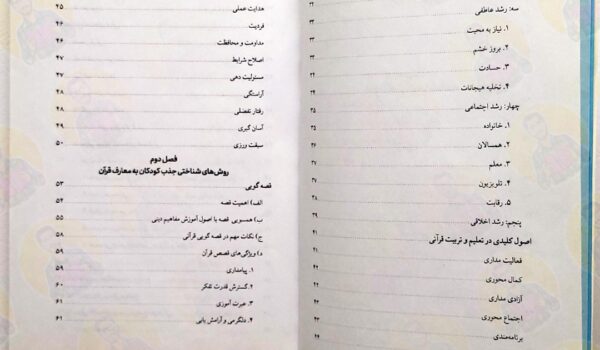 سه: رشد عاطفی ۳۲
۱. نیاز به محبت
۲. بروز خشم
۳. حسادت
۴. تخلیه هیجانات ۳۴
چهار: رشد اجتماعی ۳۵
۱. خانواده ۳۵
۲. همسالان
۳. معلم
۴. تلویزیون
۵. رقابت
پنجم: رشد اخلاقی ۳۹
اصول کلیدی در تعلیم و تربیت قرآنی ۴۱
فعالیت مداری
کمال محوری
آزادی مداری
اجتماع محوری
برنامه‌مندی ۴۴
هدایت عملی ۴۵
فردیت ۴۶
مداومت و محافظت ۴۶
اصلاح شرایط ۴۷
مسئولیت دهی ۴۷
آراستگی ۴۸
رفتار تفضلی ۴۸
آسان گیری ۴۹
سبقت ورزی ۵۰
فصل دوم
روش‌های شناختی جذب کودکان به معارف قرآن
قصه گویی ۵۳
الف) اهمیت قصه ۵۴
ب) همسویی قصه با اصول آموزش مفاهیم دینی ۵۵
ج) نکات مهم در قصه گویی قرآنی ۵۸
د) ویژگی‌های قصص قرآن ۵۹
۱. پیامداری ۵۹
۲. گسترش قدرت تفکر ۶۰
۳. عبرت آموزی ۶۱
۴. دلگرمی و آرامش یابی ۶۱